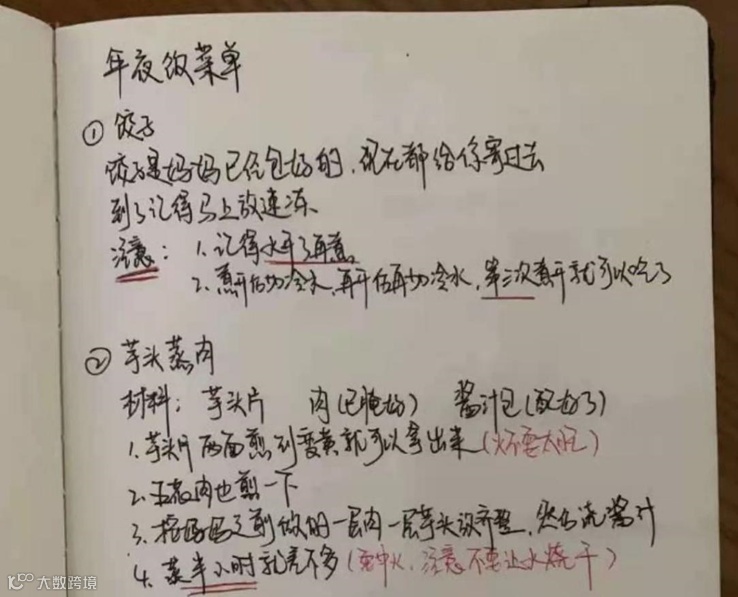 年夜饭菜单
① 饺子
饺子是妈妈已经包好的，现在都给你寄过去
到了记得马上放速冻。
注意：1.记得水开了再煮。
2.煮开后加冷水，再开后再加冷水，第三次煮开就可以吃了
② 芋头蒸肉
材料：芋头片 肉(已腌好) 酱汁包(配好了)
1.芋头片两面煎到变黄就可以拿出来(火不要太旺)
2.五花肉也煎一下
3.按妈妈之前做的一层肉一层芋头放齐整，然后浇酱汁
4.蒸半小时就差不多(要中火，注意不要让水烧干)
100 大数跨境